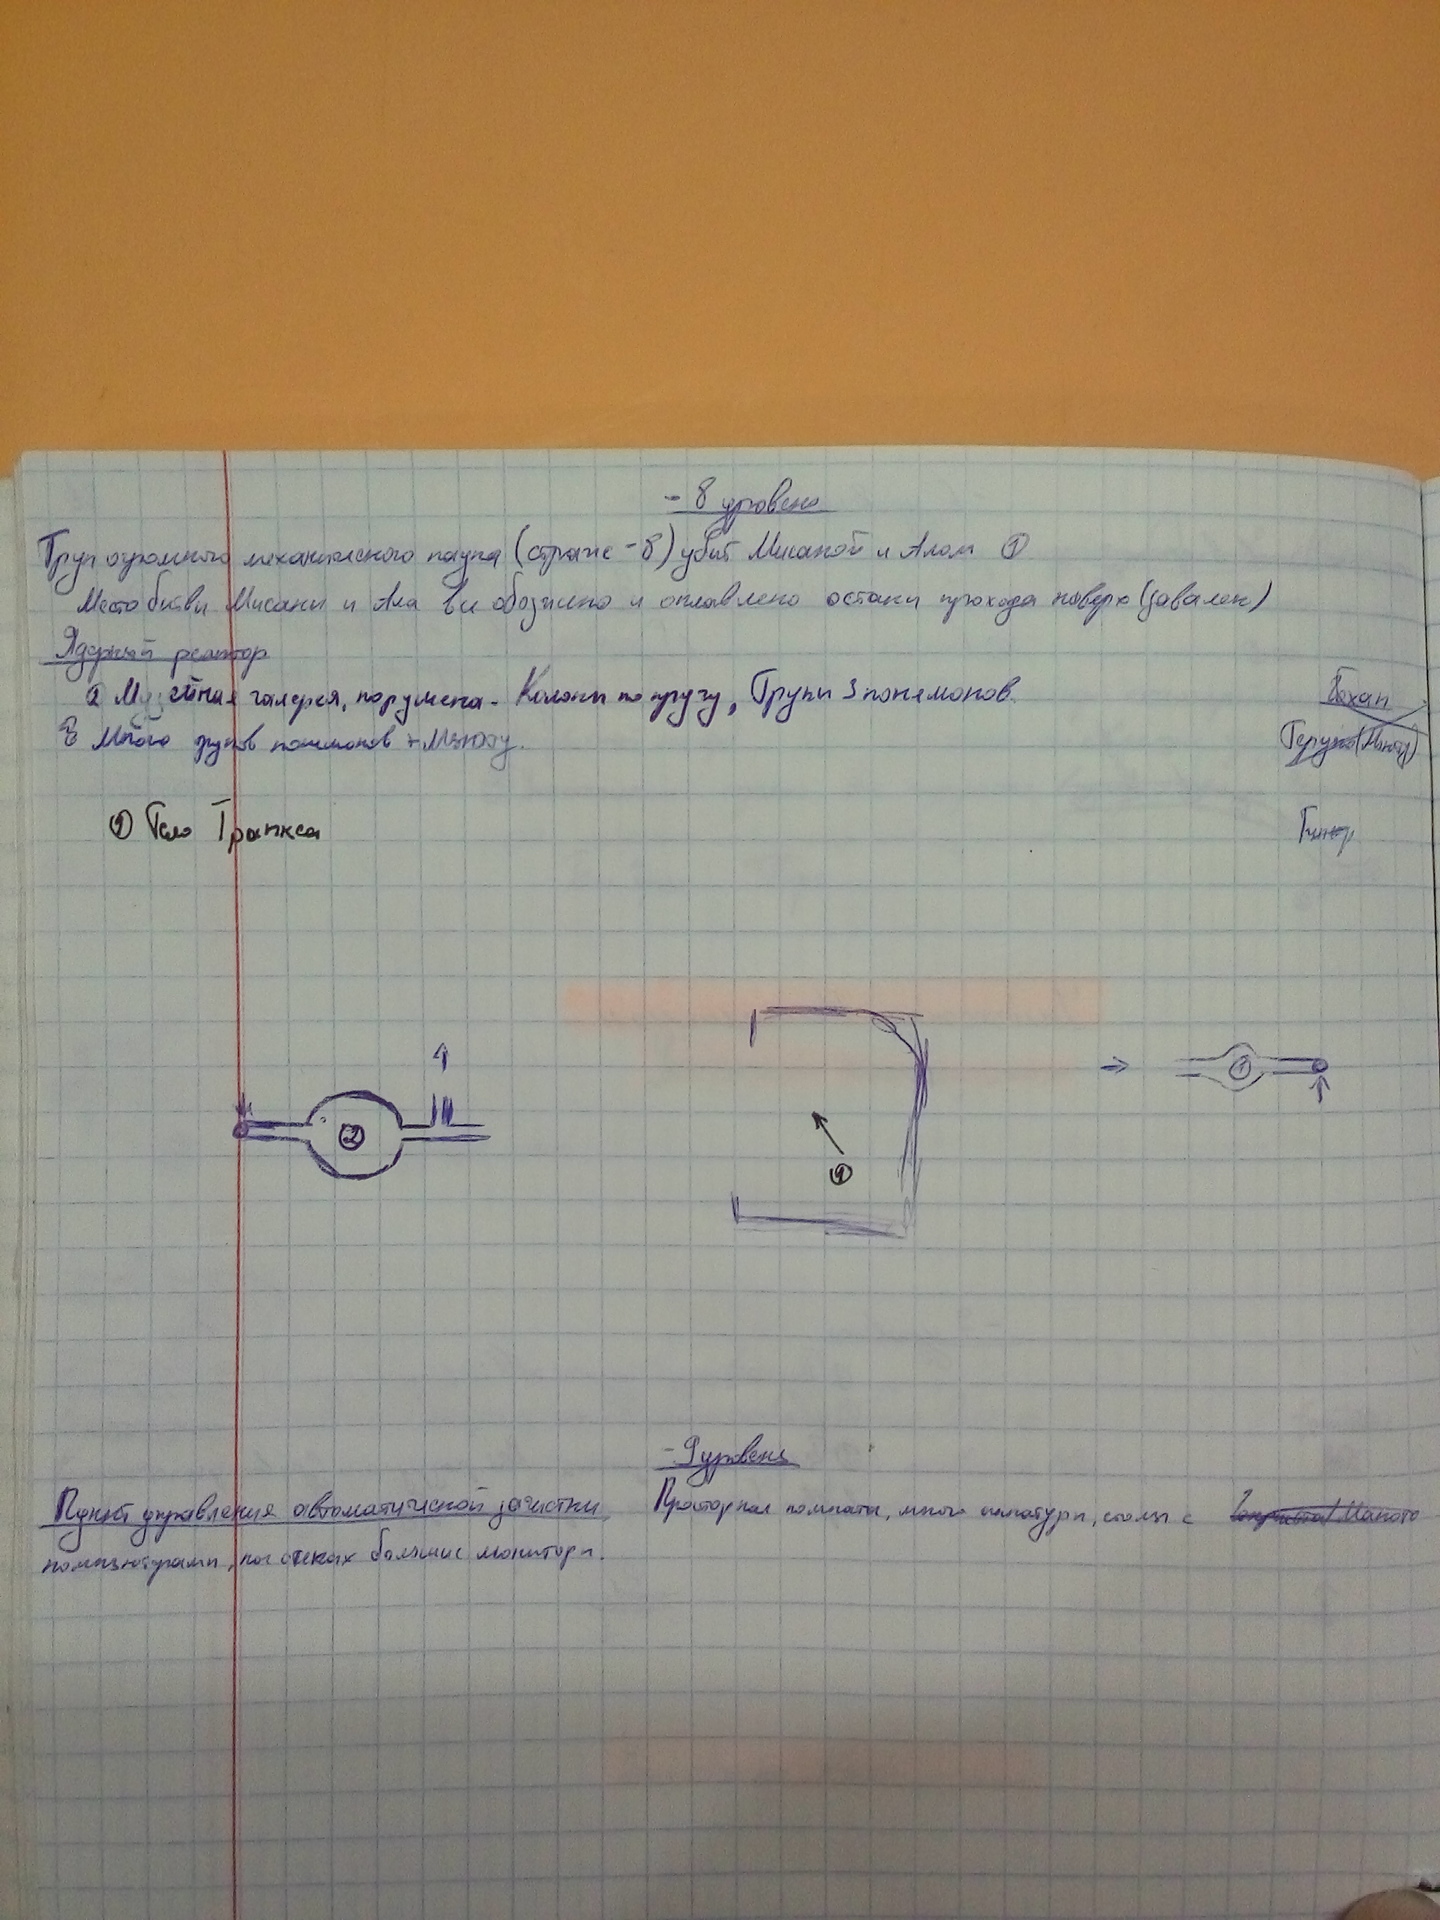 - 8 уровень
Труп огромного механического паука (страж -8) убит Мисаной и Алом ①
Место битвы Мисаны и Ала все обозжено и оплавлено остаки прохода наверх (завален)
Ядерный реактор
② Музейная галерея, порушена - Колоны по кругу, Трупы 3 покемонов.
Бохан
③ Много трупов покемонов + Мьюту.
(Мьюту)
① Тело Транкса
②
①
①
- 9 уровень
Пункт управления автоматической зачистки Просторная комната, много апаратуры, столы с
компьютерами, на стенах большие мониторы.